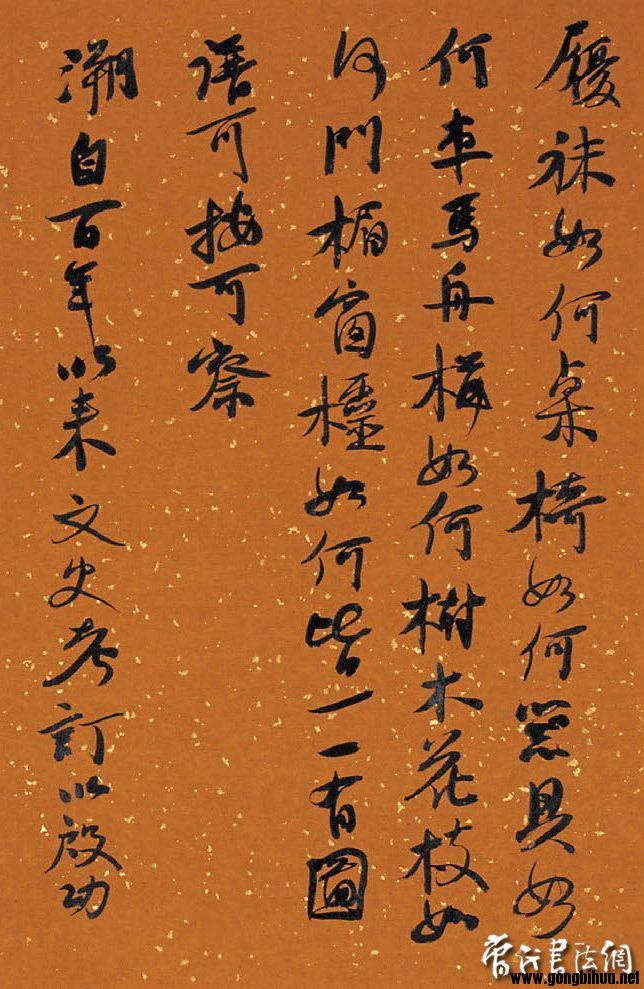 履袜如何桌椅如何器具如
何車馬舟如何樹木花枝如
何門楣窗欞如何皆一一有圖
譜可按可察
溯自百年以来文史考訂以啟功
書法網
www.gongbihua.net